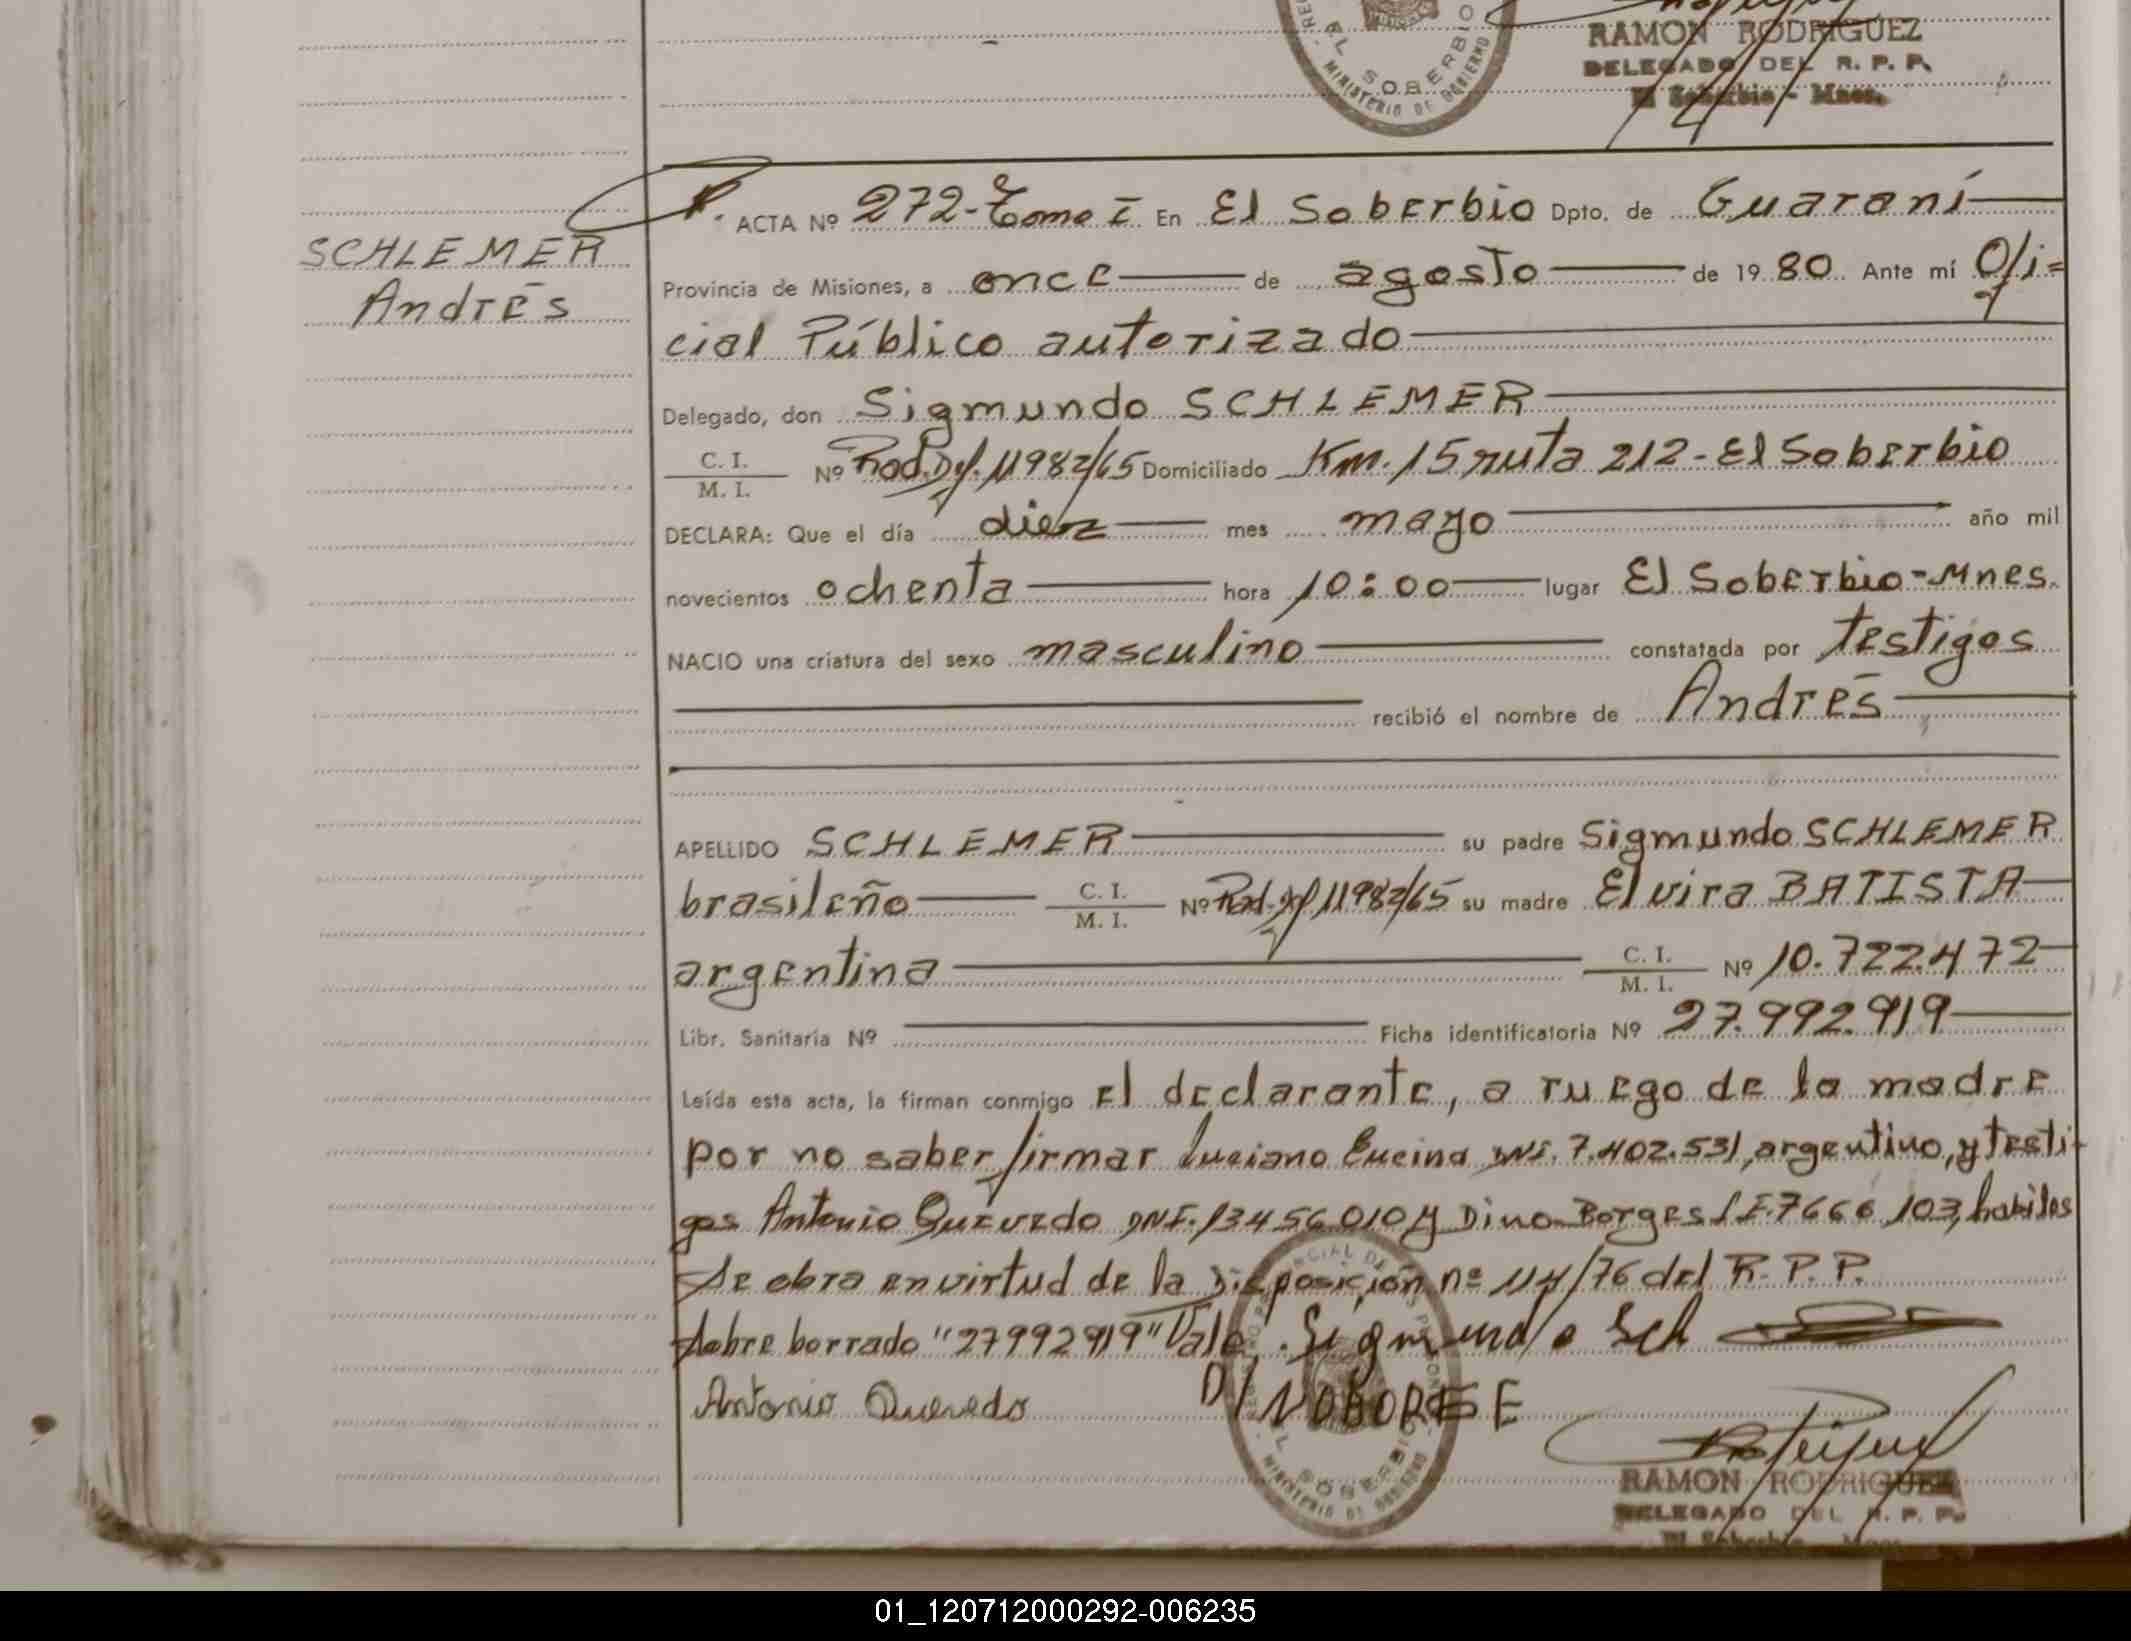 EL SOBERBIO
MINISTERIO DE GOBIERNO
RAMON RODRIGUEZ
DELEGADO DEL R. P. P.
El Soberbio - Mnes.
SCHLEMER
Andrés
ACTA Nº 272-Tomo I En El Soberbio Dpto. de Guaraní
Provincia de Misiones, a once de agosto de 1980 Ante mí Ofi=
cial Público autorizado
Delegado, don Sigmundo SCHLEMER
C. I.
M. I. Nº Rad. Def. 11982/65 Domiciliado Km. 15 ruta 212-El Soberbio
DECLARA: Que el día diez mes mayo año mil
novecientos ochenta hora 10:00 lugar El Soberbio-Mnes.
NACIO una criatura del sexo masculino constatada por testigos
recibió el nombre de Andrés
APELLIDO SCHLEMER su padre Sigmundo SCHLEMER
brasileño C. I. M. I. Nº Rad. Def 11982/65 su madre Elvira BATISTA
argentina C. I. M. I. Nº 10.722.472
Libr. Sanitaria Nº Ficha identificatoria Nº 27.992.919
Leída esta acta, la firman conmigo El declarante, a ruego de la madre
por no saber firmar Luciano Encina DNI. 7.402.531, argentino, y testi-
gos Antonio Quevedo DNI. 13456010 y Dino Borges L.E. 7666 103, habiles
Se obra en virtud de la Disposición nº 114/76 del R. P. P.
Sobre borrado "27992919" Vale. Sigmundo Sch
Antonio Quevedo DINOBORGE
EL SOBERBIO
MINISTERIO DE GOBIERNO
RAMON RODRIGUEZ
DELEGADO DEL R. P. P.
El Soberbio - Mnes.
01_120712000292-006235